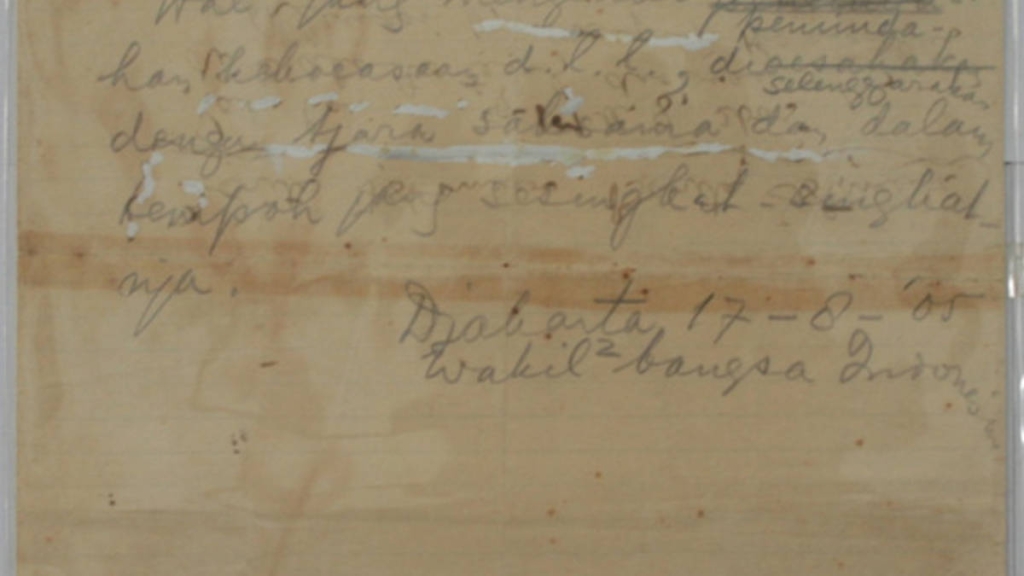 Hal² jang mengenai
peminda-
han kekoeasaan d.l.l., dioesahakan
selenggarakan
dengan tjara saksama dan dalam
tempoh jang sesingkat-singkat-
nja.
Djakarta, 17-8-'05
Wakil² bangsa Indonesia